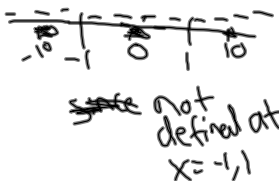 -10 -1 0 1 10
not
defined at
x = -1, 1